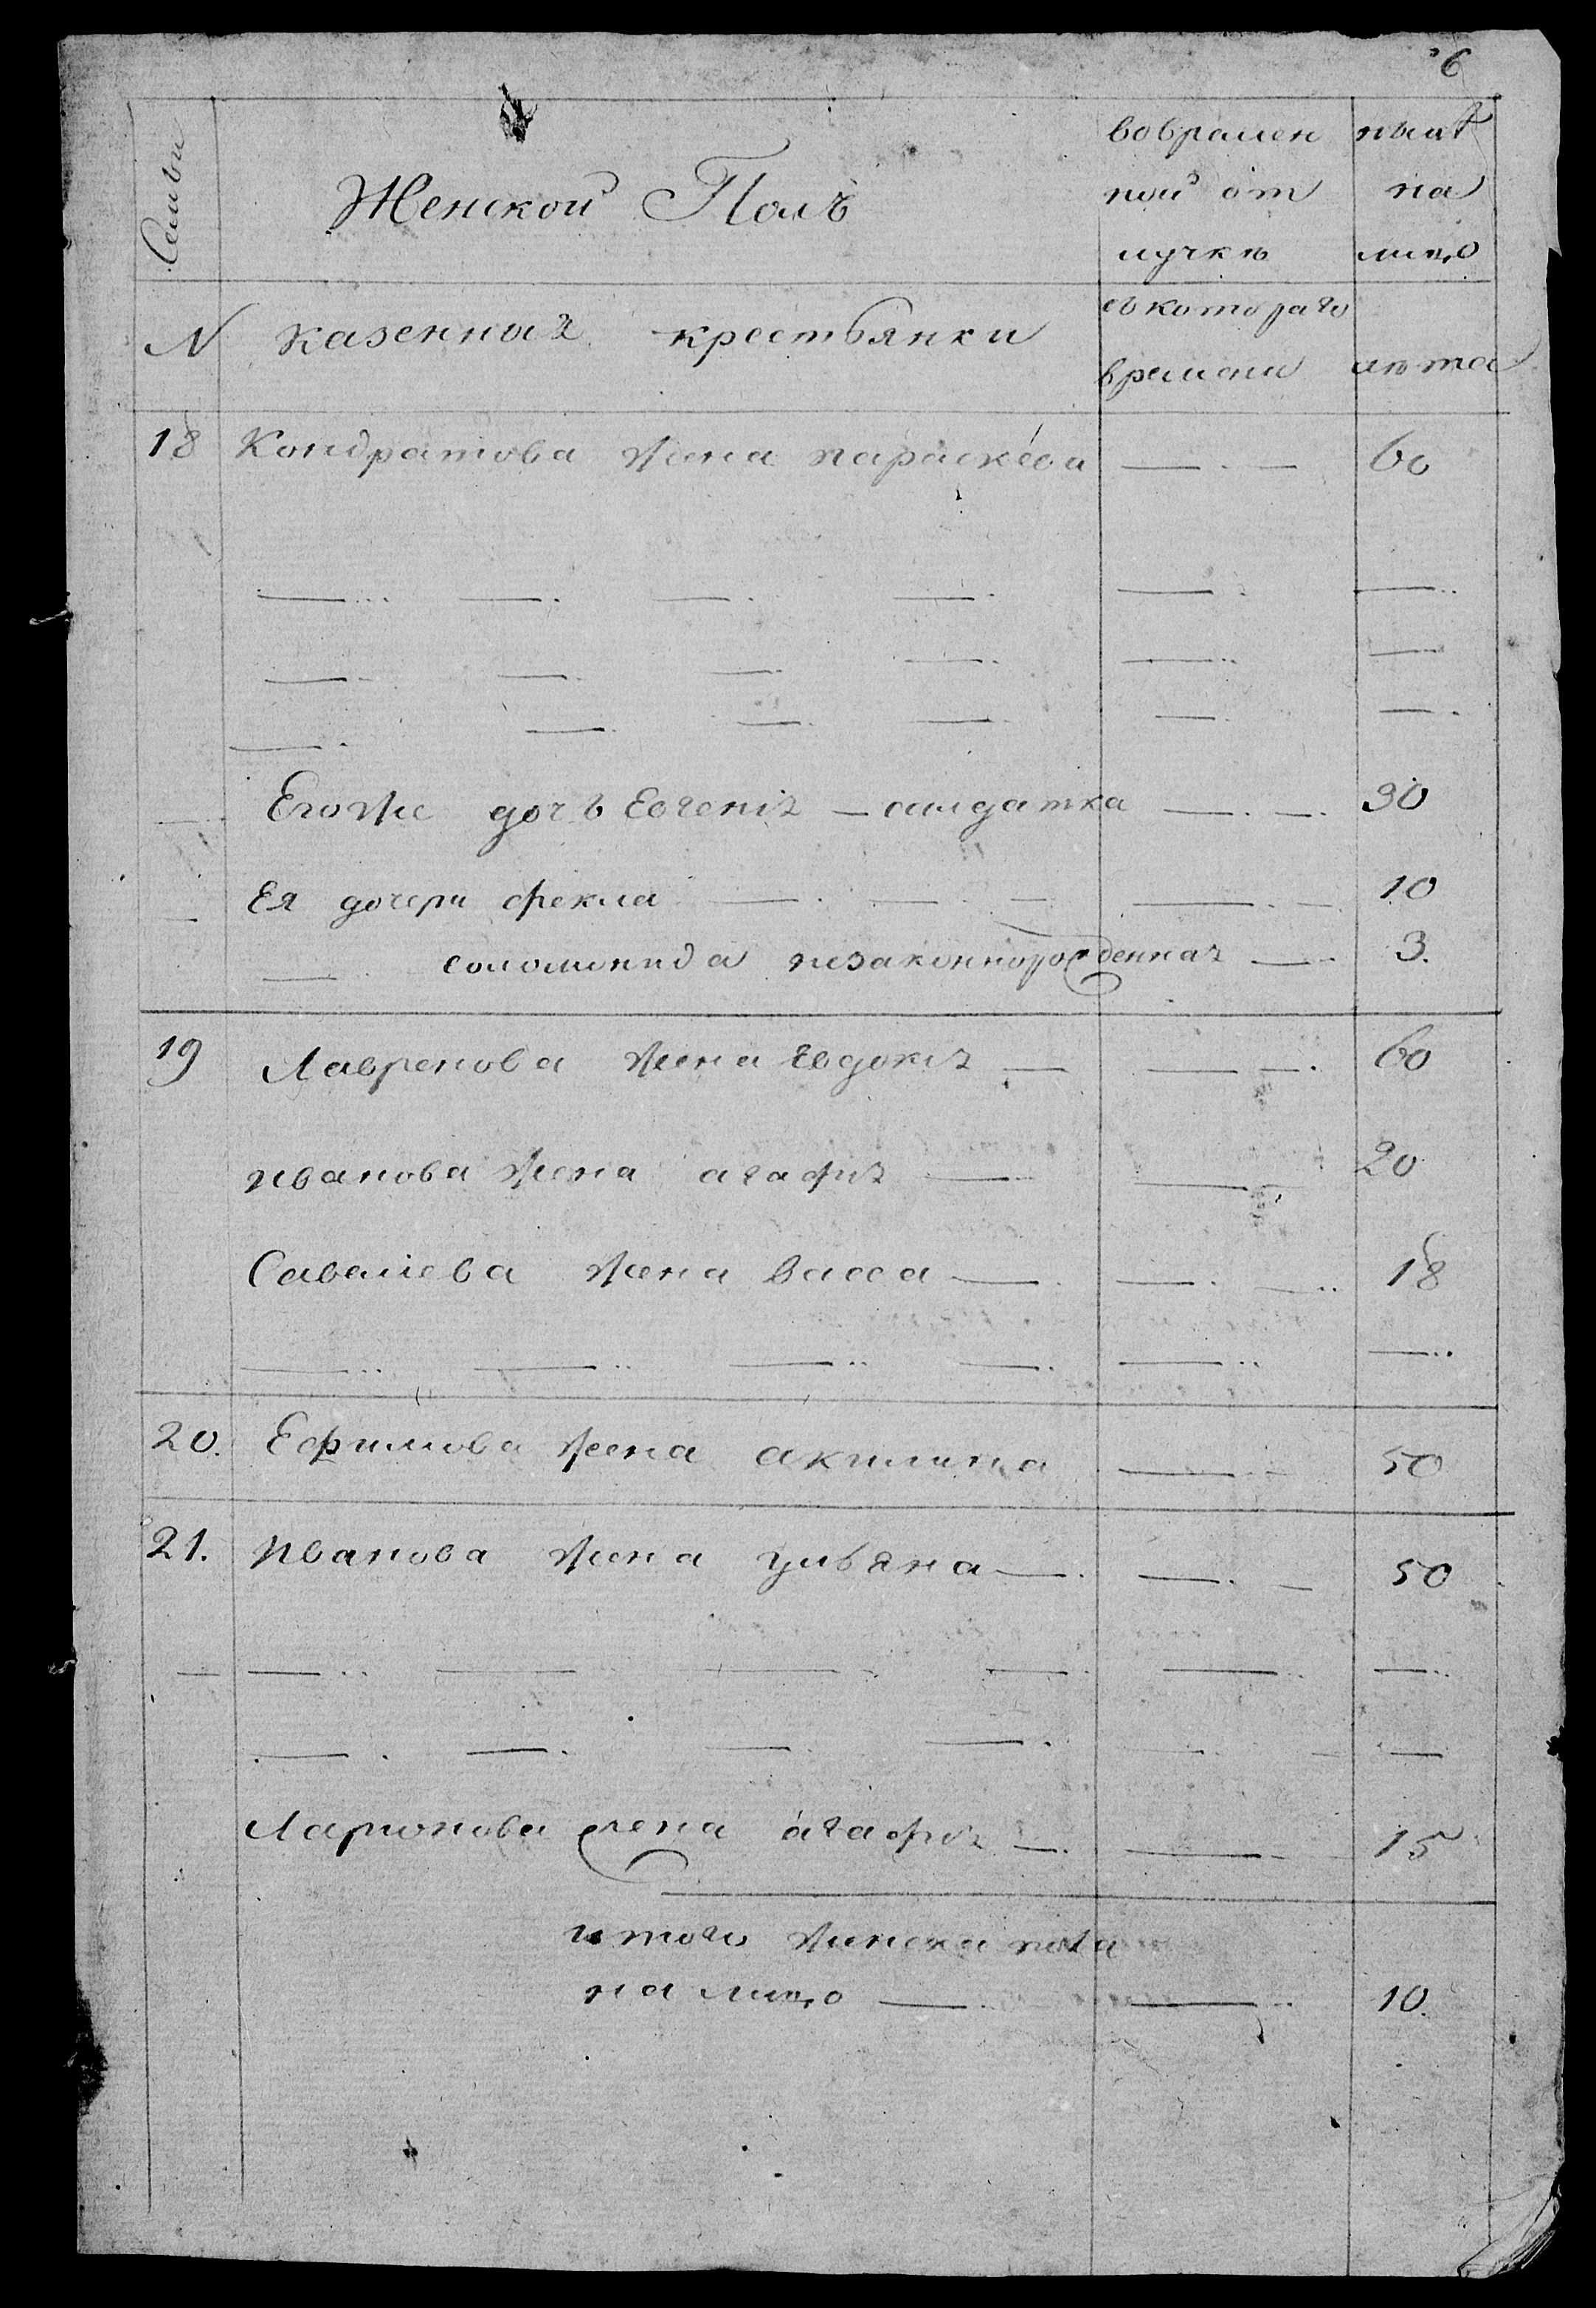 6
Семьи
Женской Полъ
вовремен
ной от
лучкѣ
ныне
на
лицо
N казенныя крестьянки
съ котораго
времени
лѣта
18 Кондратова жена параскева — — 60
Егоже дочь Евгения — салдатка — — 30
Ея дочери фекла — — — — — 10
— соломонида незаконнорожденная — 3.
19 Лавренова жена Евдокия — — — 60
иванова жена агафия — — 20
Савелиева жена васса — — — 18
20. Ефимова жена акилина — — 50
21. Иванова жена ульяна — — — 50
Ларионова жена агафия — — 15
итого женска пола
на лицо — — 10.